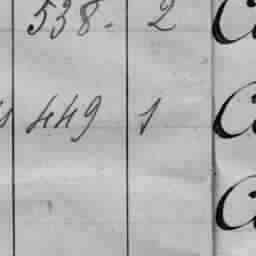 538. 2
449 1